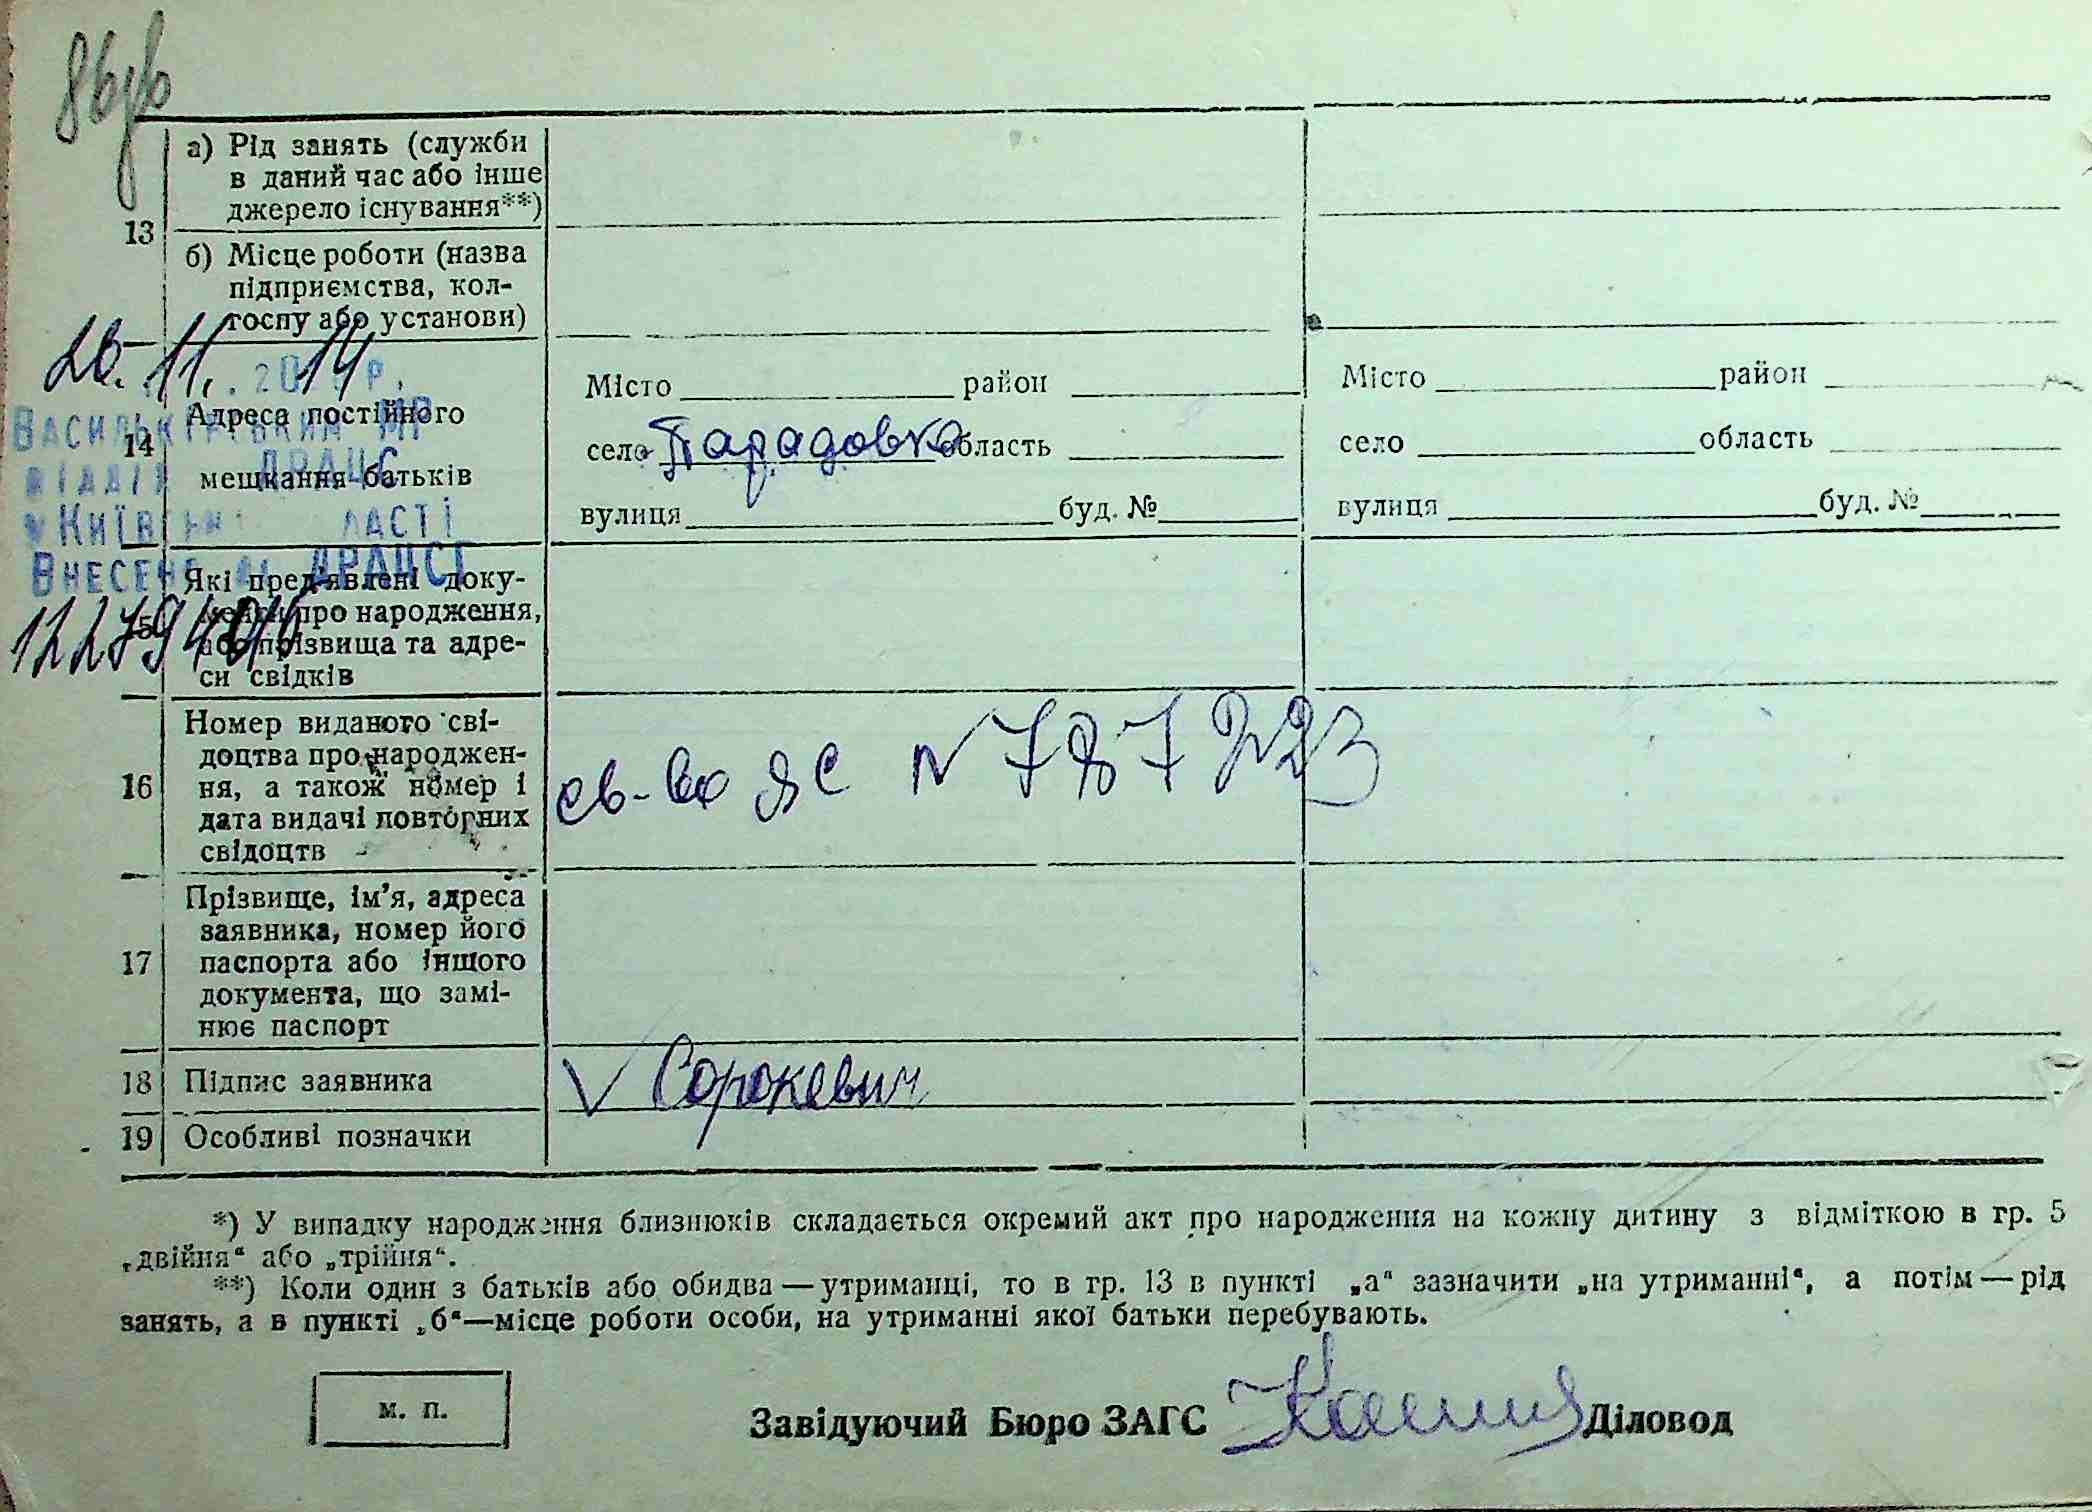 а) Рід занять (служби
в даний час або інше
джерело існування**)
13
б) Місце роботи (назва
підприємства, кол-
госпу або установи)
20.11.2014 р.
Місто район Місто район
Адреса постійного
14
село область село область
мешкання батьків
вулиця буд. № вулиця буд. №
ВАСИЛЬКІВСЬКИЙ МР
ВІДДІЛ ДРАЦС
КИЇВСЬКОЇ ОБЛАСТІ
ВНЕСЕНО ДРАЦСГ
Які пред'явлені доку-
менти про народження,
або прізвища та адре-
си свідків
Номер виданого сві-
доцтва про народжен-
16 ня, а також номер і св-во ЯС N 787223
дата видачі повторних
свідоцтв
Прізвище, ім'я, адреса
заявника, номер його
17 паспорта або іншого
документа, що замі-
нює паспорт
18 Підпис заявника V Сорокевич
19 Особливі позначки
*) У випадку народження близнюків складається окремий акт про народження на кожну дитину з відміткою в гр. 5
„двійня“ або „трійня“.
**) Коли один з батьків або обидва — утриманці, то в гр. 13 в пункті „а“ зазначити „на утриманні“, а потім — рід
занять, а в пункті „б“—місце роботи особи, на утриманні якої батьки перебувають.
м. п.
Завідуючий Бюро ЗАГС Діловод